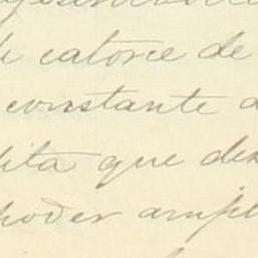 de catorce de
constante a
dita que des
poder ampl